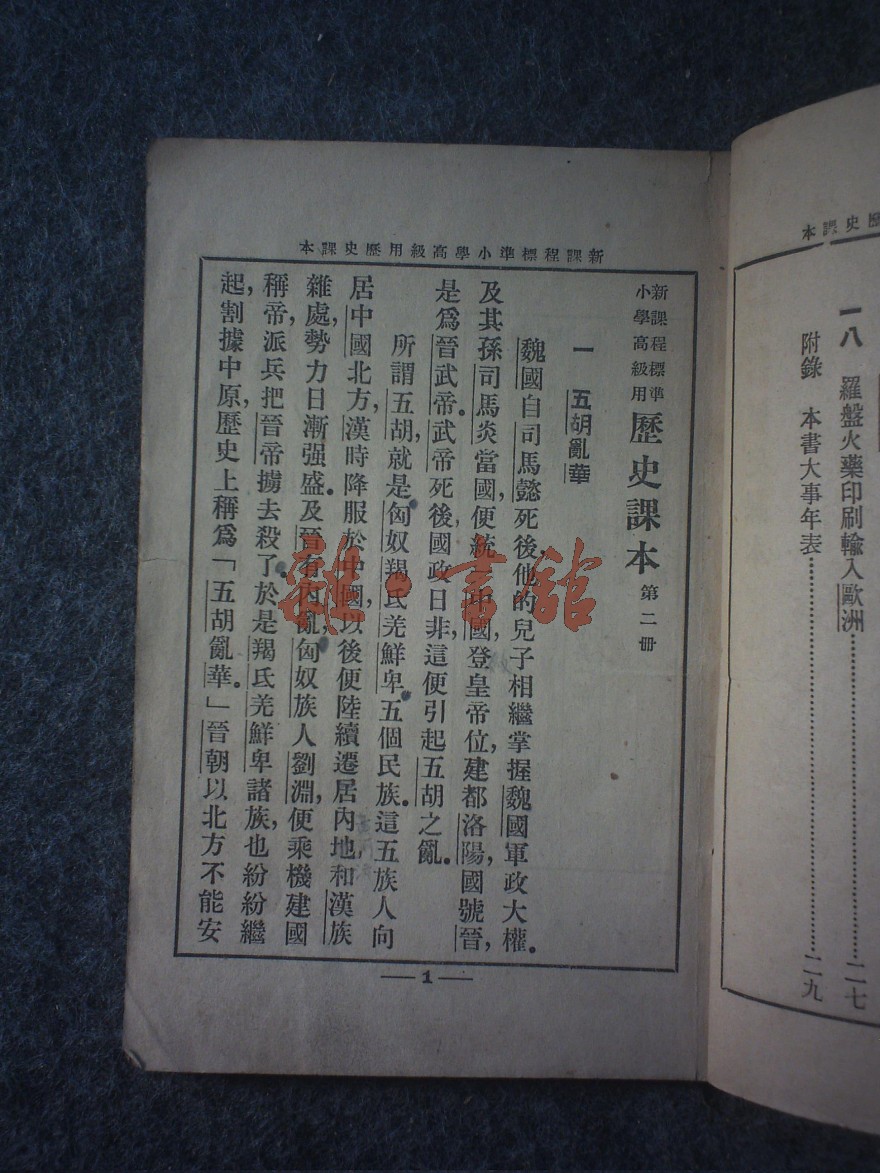 本課史歷
一八 羅盤火藥印刷輸入歐洲……二七
附錄 本書大事年表……二九
本課史歷用級高學小準標程課新
新課程標準
小學高級用
歷史課本 第二冊
一 五胡亂華
魏國自司馬懿死後,他的兒子相繼掌握魏國軍政大權.
及其孫司馬炎當國,便統一中國,登皇帝位,建都洛陽,國號晉,
是爲晉武帝.武帝死後,國政日非,這便引起五胡之亂.
所謂五胡,就是匈奴羯氐羌鮮卑五個民族.這五族人向
居中國北方,漢時降服於中國,以後便陸續遷居內地,和漢族
雜處,勢力日漸强盛.及晉有內亂,匈奴族人劉淵,便乘機建國
稱帝,派兵把晉帝擄去殺了.於是羯氐羌鮮卑諸族,也紛紛繼
起,割據中原,歷史上稱爲「五胡亂華.」晉朝以北方不能安
1
雜·書館